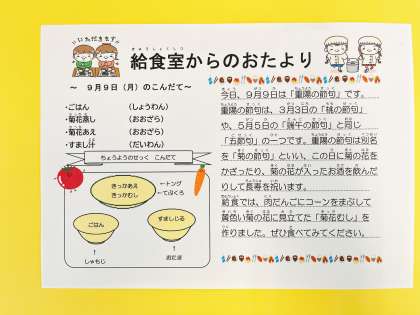 いただきます
給食室からのおたより
～ 9月9日（月）のこんだて～
・ごはん （しょうわん）
・菊花蒸し （おおざら）
・菊花あえ （おおざら）
・すまし汁 （だいわん）
ちょうようのせっく こんだて
きっかあえ
きっかむし
←トング
←てぶくろ
ごはん
すましじる
↑
しゃもじ
↑
おたま
今日、9月9日は「重陽の節句」です。
重陽の節句は、3月3日の「桃の節句」
や、5月5日の「端午の節句」と同じ
「五節句」の一つです。重陽の節句は別名
を「菊の節句」といい、この日に菊の花を
かざったり、菊の花が入ったお酒を飲んだ
りして長寿を祝います。
給食では、肉だんごにコーンをまぶして
黄色い菊の花に見立てた「菊花むし」を
作りました。ぜひ食べてみてください。